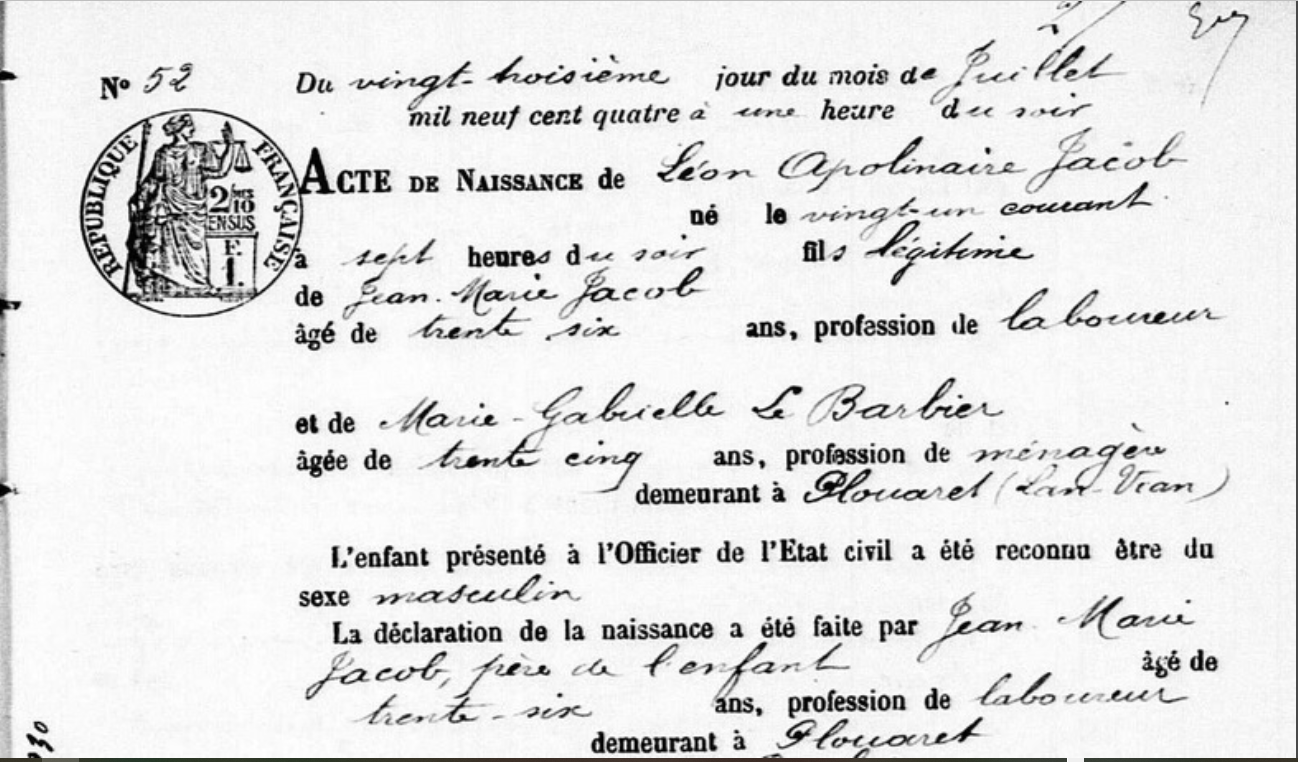 Nº 52 Du vingt-troisième jour du mois de Juillet
mil neuf cent quatre à une heure du soir
RÉPUBLIQUE FRANÇAISE
2 10
EN SUS
F.
1.
ACTE DE NAISSANCE de Léon Apolinaire Jacob
né le vingt-un courant
à sept heures du soir fils légitime
de Jean-Marie Jacob
âgé de trente six ans, profession de laboureur
et de Marie-Gabrielle Le Barbier
âgée de trente cinq ans, profession de ménagère
demeurant à Plouaret (Lan-Vran)
L'enfant présenté à l'Officier de l'Etat civil a été reconnu être du
sexe masculin
La déclaration de la naissance a été faite par Jean Marie
Jacob, père de l'enfant âgé de
trente-six ans, profession de laboureur
demeurant à Plouaret